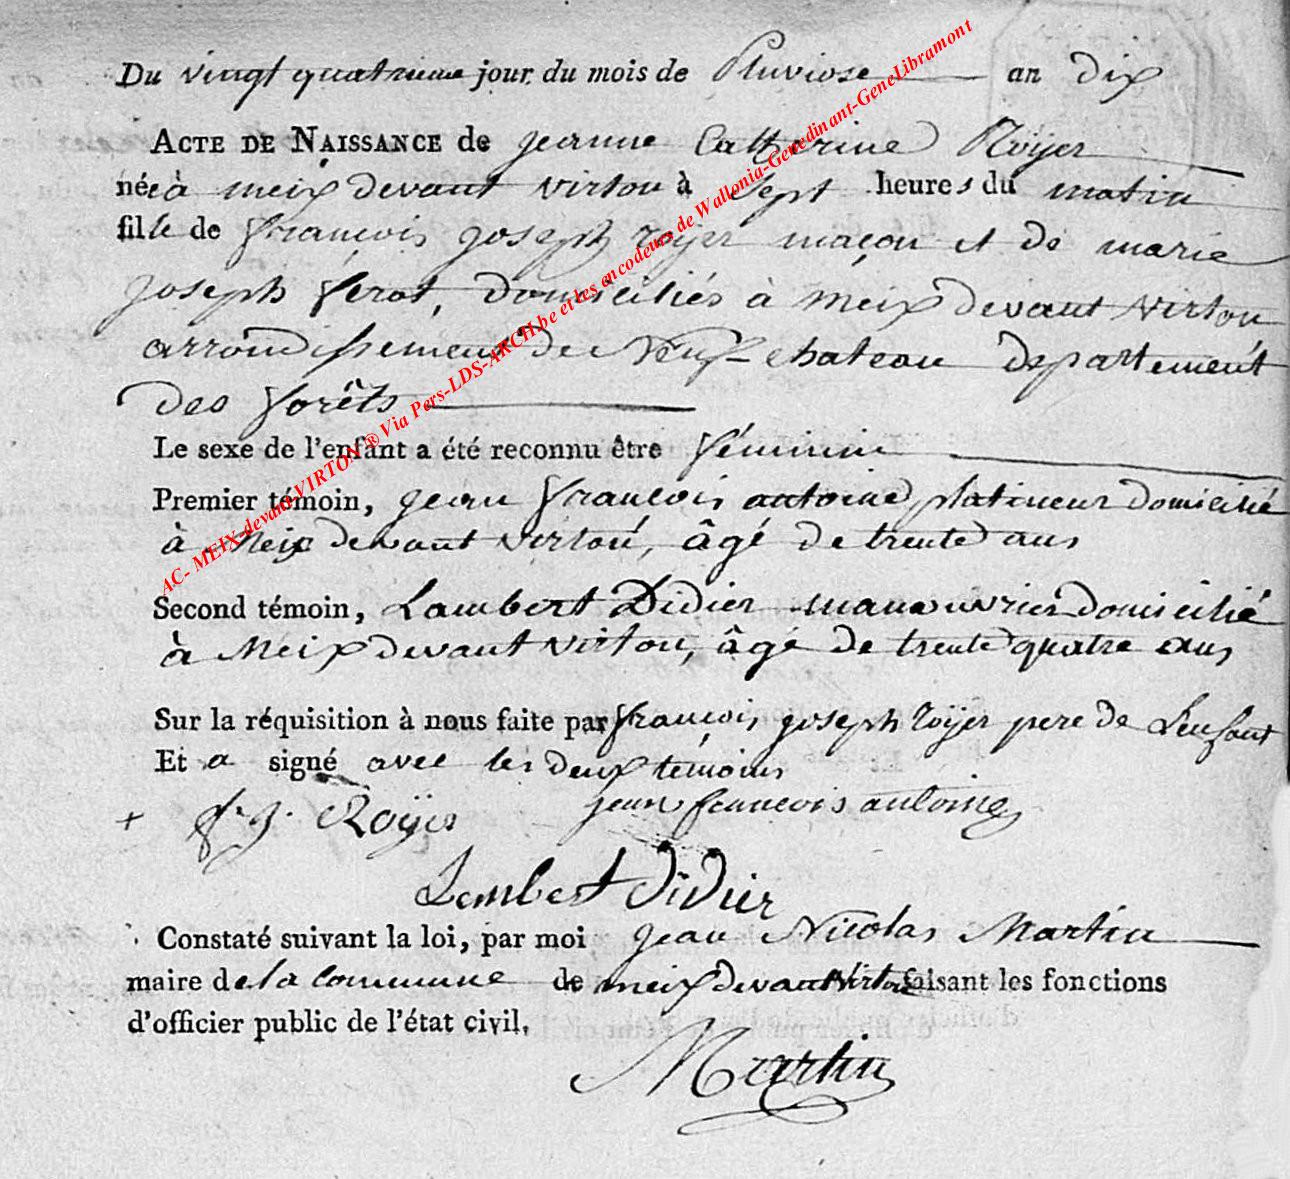 Du vingt quatrieme jour du mois de Pluviose an dix
ACTE DE NAISSANCE de jeanne Catherine Roÿer
née à meix devant virton à sept heures du matin
fille de françois joseph roÿer maçon et de marie
joseph ferot, domiciliés à meix devant virton
arrondissement de Neuf-chateau departement
des forêts
Le sexe de l'enfant a été reconnu être féminin
Premier témoin, jean françois antoine platineur domicilié
à Meix devant virton, âgé de trente ans
Second témoin, Lambert Didier manouvrier domicilié
à Meix devant virton, âgé de trente quatre ans
Sur la réquisition à nous faite par françois joseph roÿer pere de Lenfant
Et a signé avec les deux témoins
+ f. j. Roÿer jean francois antoine
Lambert Didier
Constaté suivant la loi, par moi jean Nicolas Martin
maire de la commune de meix devant Virton faisant les fonctions
d'officier public de l'état civil.
Martin
AC- MEIX-devant-VIRTON ® Via Pers-LDS-ARCH.be et les encodeurs de Wallonia-Genedinant-GeneLibramont